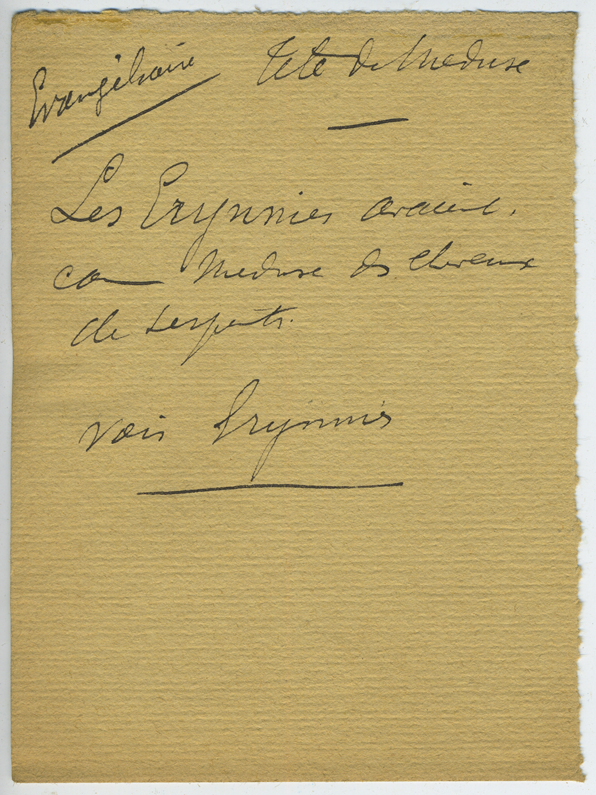 Evangéliaire Tete de Meduse
Les Erynnies avaient
com Meduse des cheveux
de serpents.
voir Erynnies